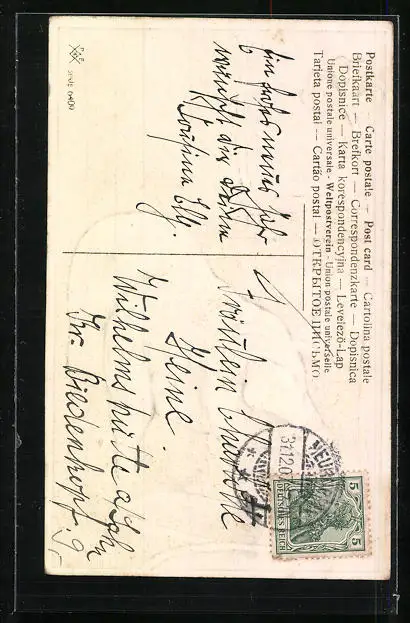 Postkarte — Carte postale — Post card — Cartolina postale
Briefkaart — Brefkort — Correspondenzkarte — Dopisnica
Dopisnice — Karta korespondencyjna — Levelező-Lap
Unione postale universale - Weltpostverein - Union postale universelle
Tarjeta postal — Cartão postal — ОТКРЫТОЕ ПИСЬМО
Ein frohes neues Jahr
wünscht dir deine
Fräulein
Heine
Wilhelmshütte a/Lahn
Kr. Biedenkopf
31.12.0
5 5
DEUTSCHES REICH